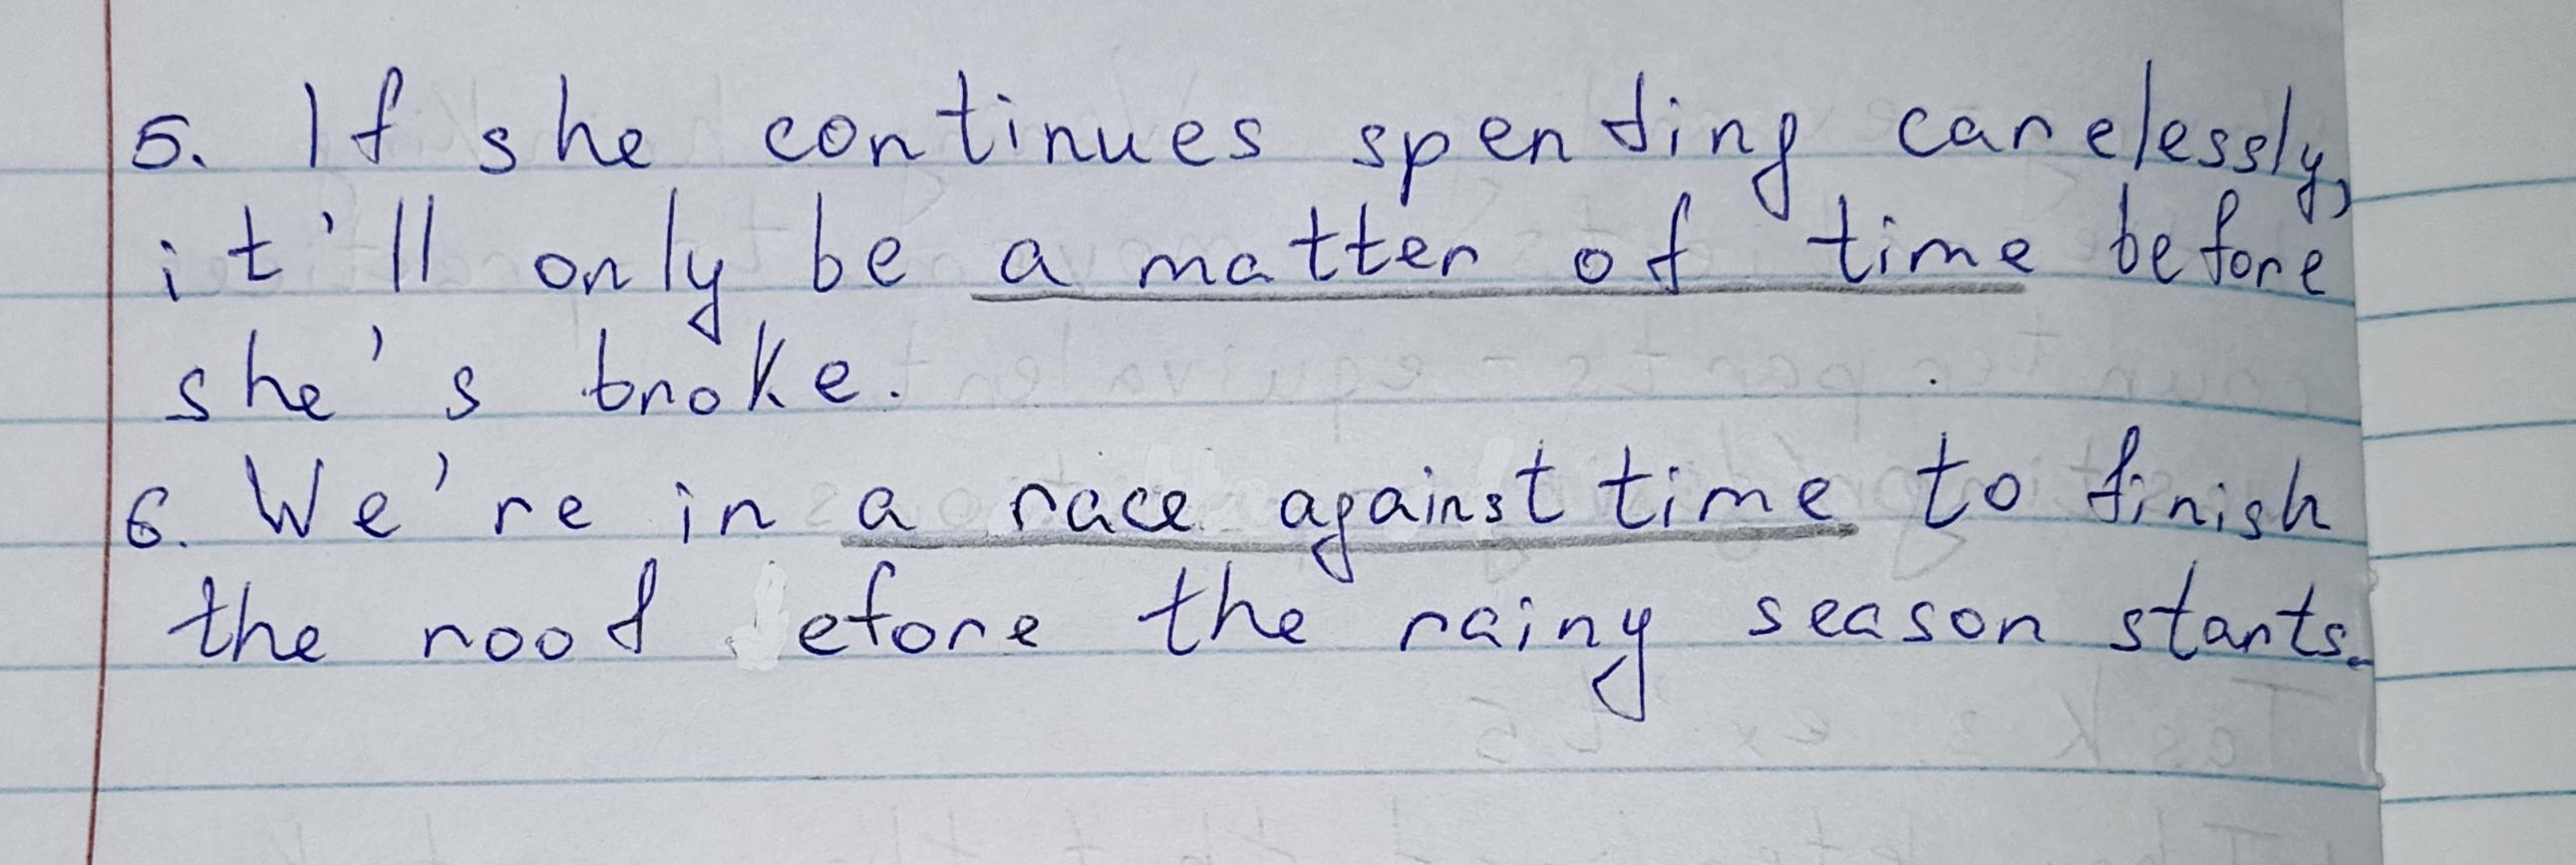 5. If she continues spending carelessly,
it'll only be a matter of time before
she's broke.
6. We're in a race against time to finish
the roof before the rainy season starts.